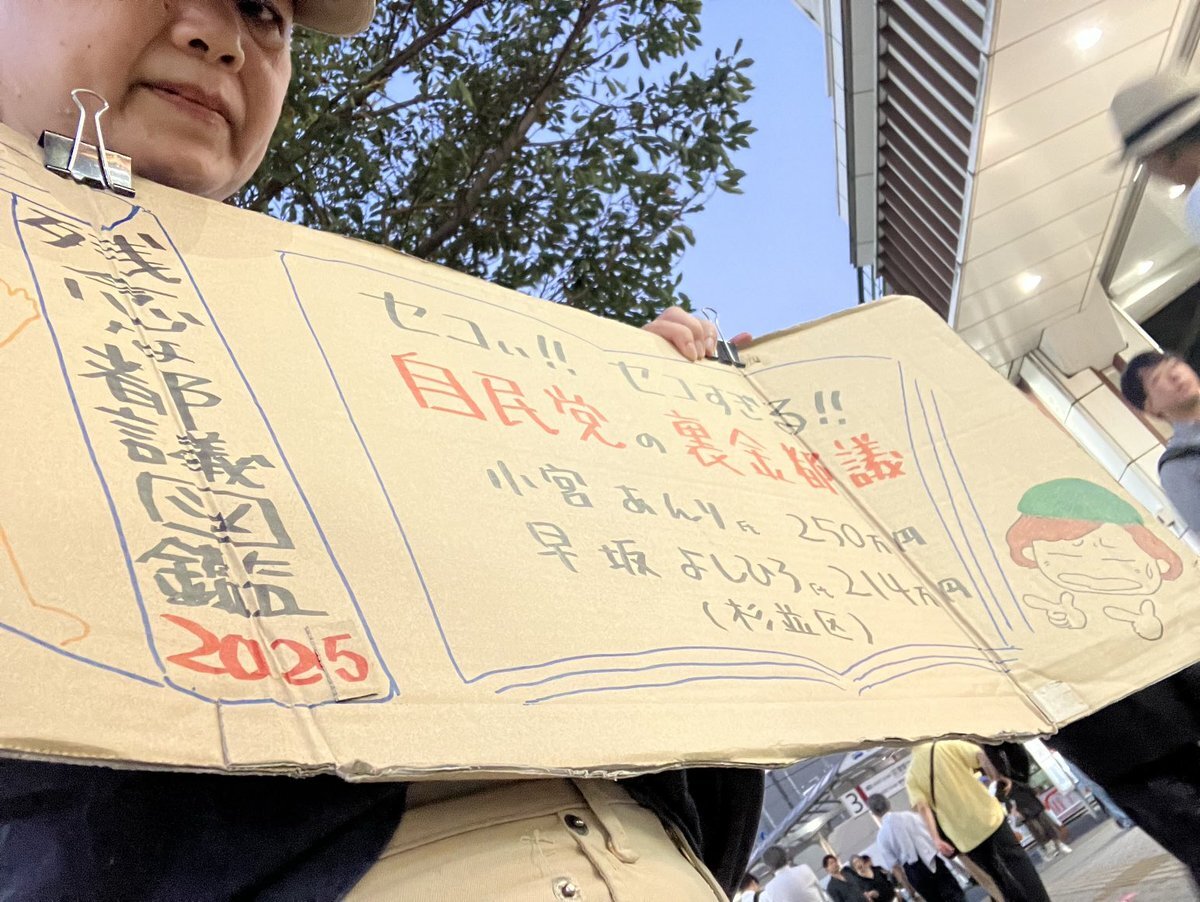 残念な都議図鑑
2025
セコい!! セコすぎる!!
自民党の裏金都議
小宮あんり氏 250万円
早坂よしひろ氏 214万円
(杉並区)
3